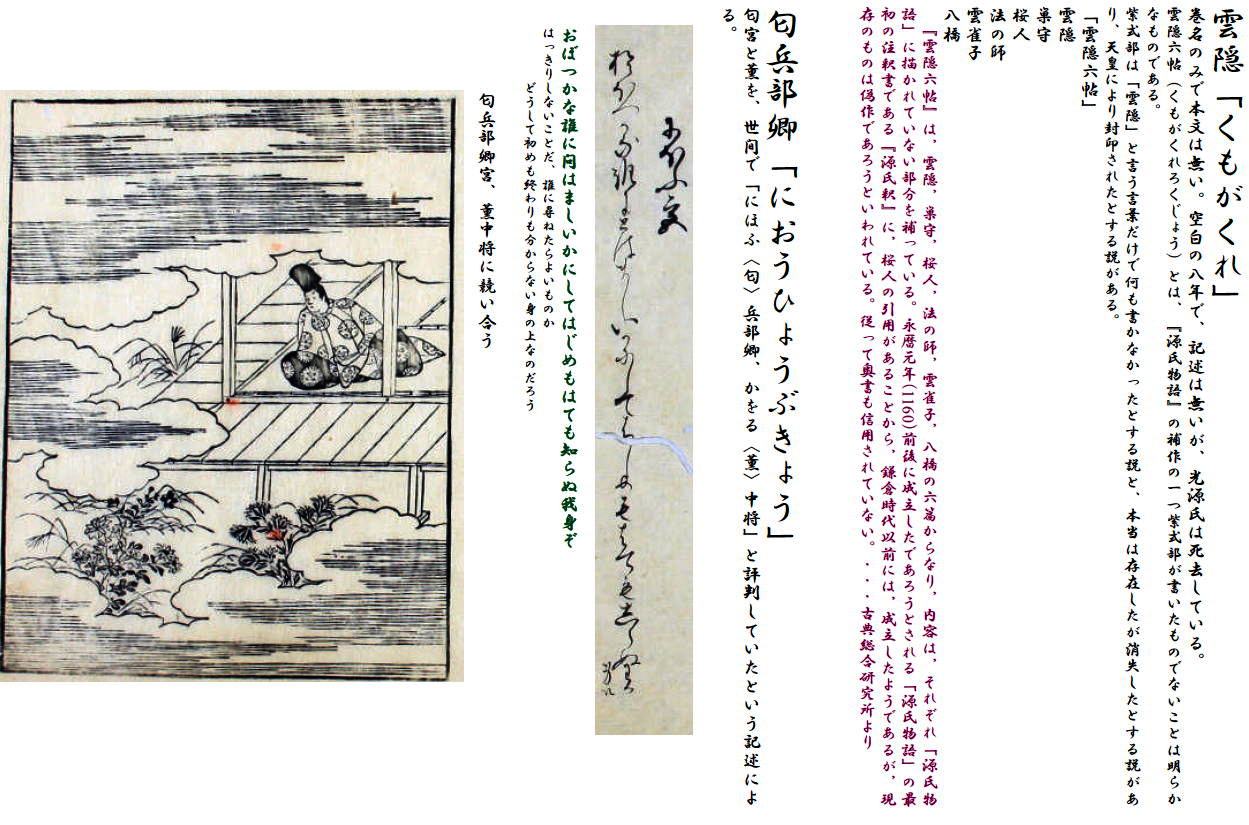 雲隠「くもがくれ」
巻名のみで本文は無い。空白の八年で、記述は無いが、光源氏は死去している。
雲隠六帖（くもがくれろくじょう）とは、『源氏物語』の補作の一つ紫式部が書いたものでないことは明らか
なものである。
紫式部は「雲隠」と言う言葉だけで何も書かなかったとする説と、本当は存在したが消失したとする説があ
り、天皇により封印されたとする説がある。
「雲隠六帖」
雲隠
巣守
桜人
法の師
雲雀子
八橋
『雲隠六帖』は、雲隠，巣守，桜人，法の師，雲雀子，八橋の六篇からなり，内容は，それぞれ「源氏物
語」に描かれていない部分を補っている。永暦元年(1160)前後に成立したであろうとされる「源氏物語」の最
初の注釈書である『源氏釈』に，桜人の引用があることから，鎌倉時代以前には，成立したようであるが，現
存のものは偽作であろうといわれている。従って奥書も信用されていない。・・・古典総合研究所より
匂兵部卿「におうひょうぶきょう」
匂宮と薫を、世間で「にほふ〈匂〉兵部卿、かをる〈薫〉中将」と評判していたという記述によ
る。
おぼつかな誰に問はましいかにしてはじめもはても知らぬ我身ぞ
はっきりしないことだ、誰に尋ねたらよいものか
どうして初めも終わりも分からない身の上なのだろう
匂兵部卿宮、薫中将に競い合う